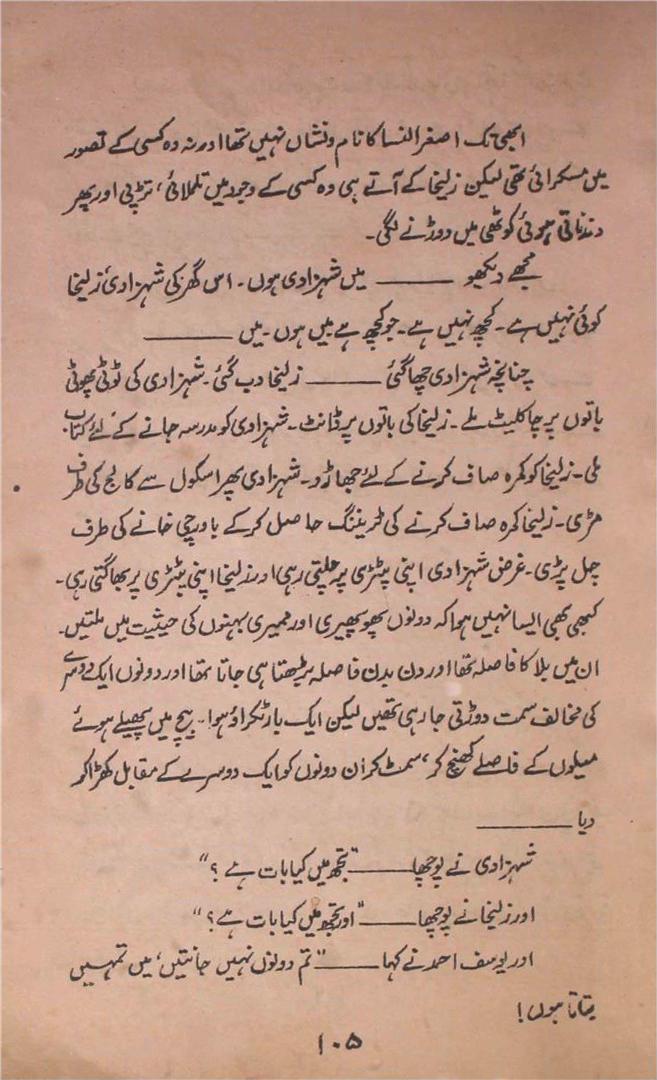 ابھی تک اصغر النسا کا نام و نشاں نہیں تھا اور نہ وہ کسی کے تصور
میں مسکرائی تھی لیکن زلیخا کے آتے ہی وہ کسی کے وجود میں تلملائی، تڑپی اور پھر
دندناتی ہوئی کوٹھی میں دوڑنے لگی۔
مجھے دیکھو ——— میں شہزادی ہوں۔ اس گھر کی شہزادی زلیخا
کوئی نہیں ہے۔ کچھ نہیں ہے۔ جو کچھ ہے میں ہوں۔ میں ———
چنانچہ شہزادی چھا گئی ——— زلیخا دب گئی۔ شہزادی کی ٹوٹی پھوٹی
باتوں پر چاکلیٹ ملے۔ زلیخا کی باتوں پر ڈانٹ۔ شہزادی کو مدرسہ جانے کے لئے کتاب
ملی۔ زلیخا کو کمرہ صاف کرنے کے لئے جھاڑو۔ شہزادی پھر اسکول سے کالج کی طرف
مڑی۔ زلیخا کمرہ صاف کرنے کی ٹریننگ حاصل کر کے باورچی خانے کی طرف
چل پڑی۔ غرض شہزادی اپنی پٹڑی پر چلتی رہی اور زلیخا اپنی پٹڑی پر بھاگتی رہی۔
کبھی بھی ایسا نہیں ہوا کہ دونوں پھوپھیری اور ممیری بہنوں کی حیثیت میں ملتیں۔
ان میں بلا کا فاصلہ تھا اور دن بدن فاصلہ بڑھتا ہی جاتا تھا اور دونوں ایک دوسرے
کی مخالف سمت دوڑتی جا رہی تھیں لیکن ایک بار ٹکراؤ ہوا۔ بیچ میں پھیلے ہوئے
میلوں کے فاصلے کھنچ کر، سمٹ کر ان دونوں کو ایک دوسرے کے مقابل کھڑا کر
دیا ———
شہزادی نے پوچھا ——— "تجھ میں کیا بات ہے ؟"
اور زلیخا نے پوچھا ——— "اور تجھ میں کیا بات ہے ؟"
اور یوسف احمد نے کہا ——— "تم دونوں نہیں جانتیں، میں تمہیں
بتاتا ہوں!
۱۰۵